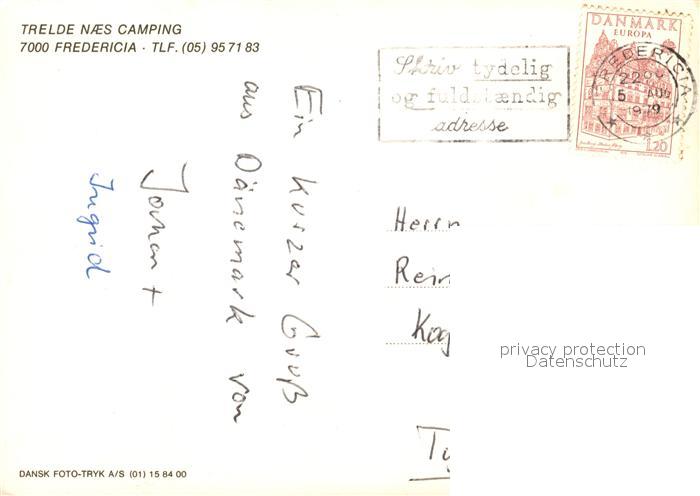 TRELDE NÆS CAMPING
7000 FREDERICIA · TLF. (05) 95 71 83
Skriv tydelig
og fuldstændig
adresse
DANMARK
EUROPA
FREDERICIA
22
5 AUG
1979
120
Ein kurzer Gruß
aus Dänemark von
Johan +
Ingrid
Herrn
Rein
Kog
privacy protection
Datenschutz
DANSK FOTO-TRYK A/S (01) 15 84 00